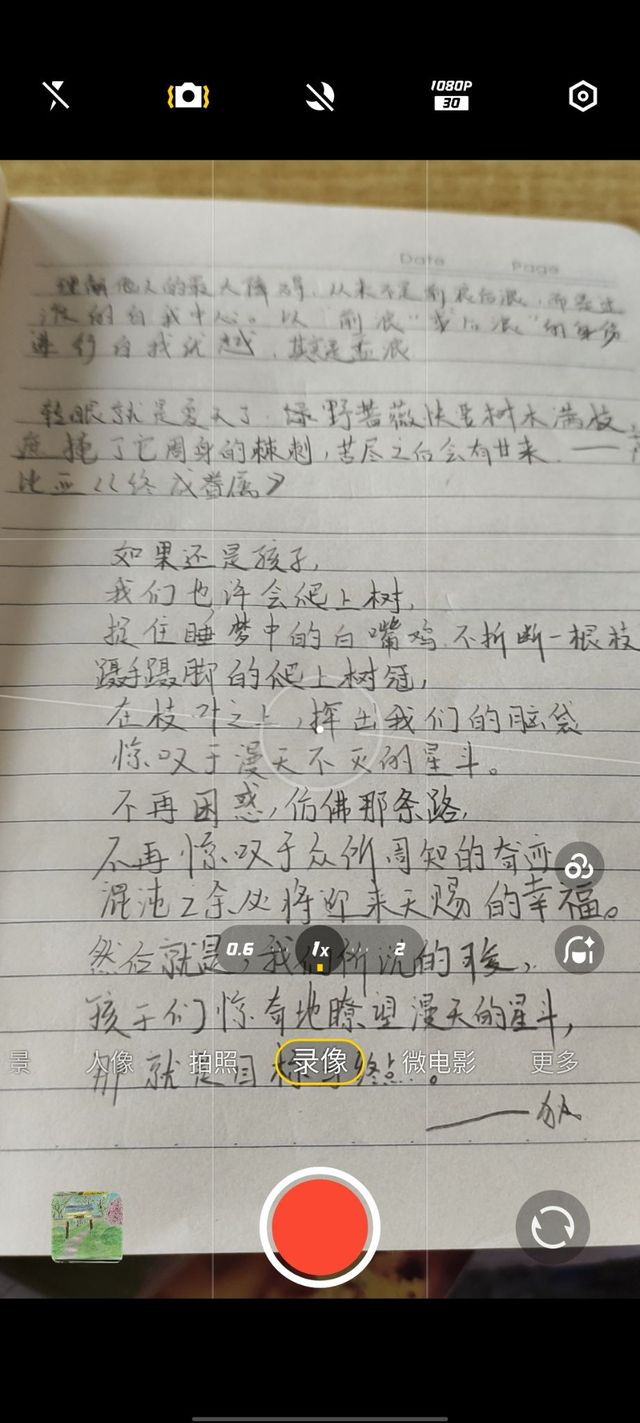 1080P
30
Date Page
理解他人的最大障碍,从来不是前浪后浪,而是过
浪的自我中心。以"前浪"或"后浪"的身份
进行自我优越,其实是孟浪
转眼就是夏天了,绿野蔷薇快要树木满枝
遮掩了它周身的棘刺,苦尽之后会有甘来 ——
比亚《终成眷属》
如果还是孩子,
我们也许会爬上树,
捉住睡梦中的白嘴鸡,不折断一根枝
蹑手蹑脚的爬上树冠,
在枝叶之上,探出我们的脑袋
惊叹于漫天不灭的星斗。
不再困惑,仿佛那条路,
不再惊叹于众所周知的奇迹
混沌之余必将迎来天赐的幸福。
0.6 1x 2
然后就是,我们所说的
孩子们惊奇地瞭望漫天的星斗,
景 人像 拍照 录像 微电影 更多
那就是目标与终点。